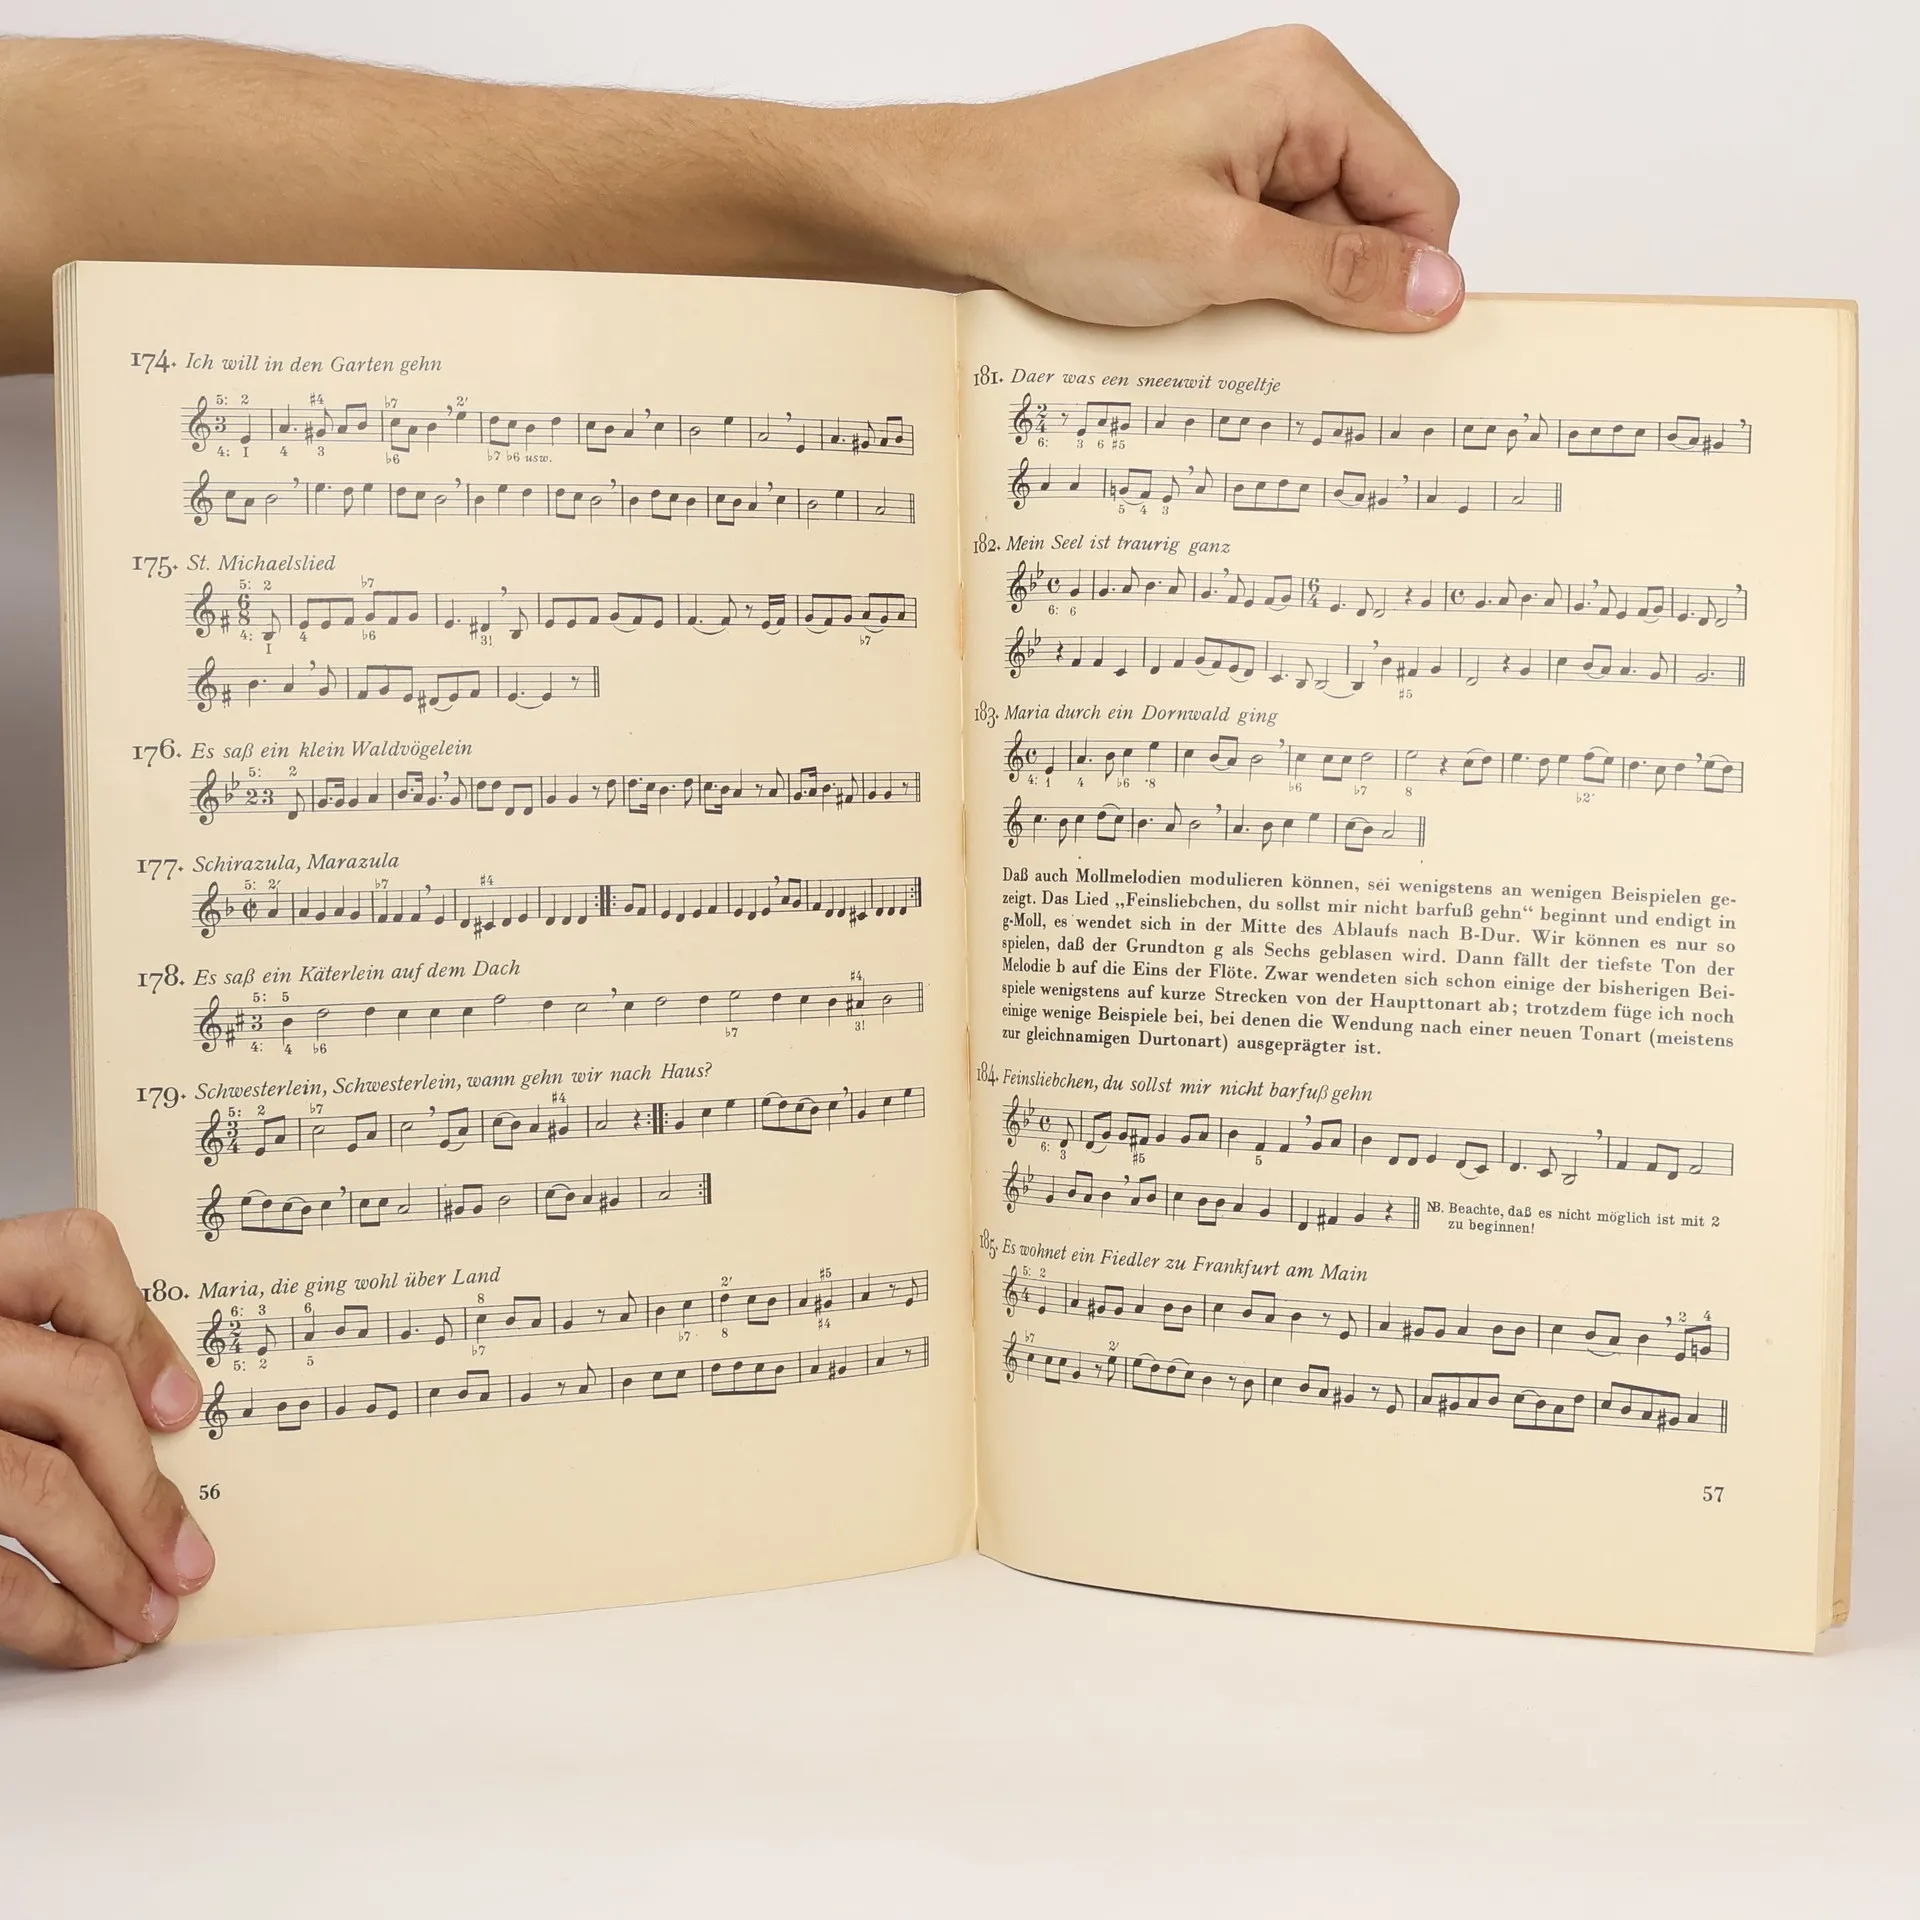 174. Ich will in den Garten gehn
5: 2 ♯4 ♭7 2'
3
4: I 4 3 ♭6 ♭7 ♭6 usw.
175. St. Michaelslied
5: 2 ♭7
6
8
4: I 4 ♭6 3! ♭7
176. Es saß ein klein Waldvögelein
5: 2
2 3
177. Schirazula, Marazula
5: 2' ♭7 ♯4
178. Es saß ein Käterlein auf dem Dach
5: 5 ♯4
3
4: 4 ♭6 ♭7 3!
179. Schwesterlein, Schwesterlein, wann gehn wir nach Haus?
5: 2 ♭7 ♯4
3
4
180. Maria, die ging wohl über Land
6: 3 6 8 2' ♯5
2
4
5: 2 5 ♭7 ♭7 8 ♯4
56
181. Daer was een sneeuwit vogeltje
2
4
6: 3 6 ♯5
5 4 3
182. Mein Seel ist traurig ganz
6
4
6: 6
♯5
183. Maria durch ein Dornwald ging
4: 1 4 ♭6 8 ♭6 ♭7 8 ♭2'
Daß auch Mollmelodien modulieren können, sei wenigstens an wenigen Beispielen ge-
zeigt. Das Lied „Feinsliebchen, du sollst mir nicht barfuß gehn“ beginnt und endigt in
g-Moll, es wendet sich in der Mitte des Ablaufs nach B-Dur. Wir können es nur so
spielen, daß der Grundton g als Sechs geblasen wird. Dann fällt der tiefste Ton der
Melodie b auf die Eins der Flöte. Zwar wendeten sich schon einige der bisherigen Bei-
spiele wenigstens auf kurze Strecken von der Haupttonart ab; trotzdem füge ich noch
einige wenige Beispiele bei, bei denen die Wendung nach einer neuen Tonart (meistens
zur gleichnamigen Durtonart) ausgeprägter ist.
184. Feinsliebchen, du sollst mir nicht barfuß gehn
6: 3 ♯5 5
NB. Beachte, daß es nicht möglich ist mit 2
zu beginnen!
185. Es wohnet ein Fiedler zu Frankfurt am Main
5: 2 2 4
4
♭7 2'
57